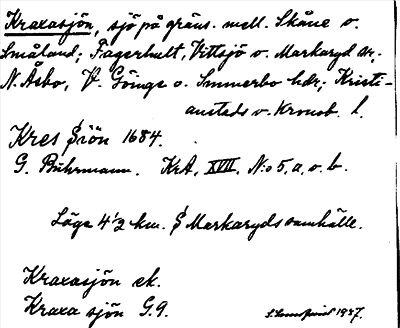 Kraxasjön, sjö på gräns. mell. Skåne o.
Småland; Fagerhult, Vittsjö o. Markaryd sn;
N. Åsbo, V. Göinge o. Sunnerbo hdr; Kristi-
anstads o. Kronob. l.
Kres Siön 1684.
G. Buhrmann. KrA, XVIII, N:o 5, a, o. b.
Läge 4 1/2 km. S Markaryds samhälle.
Kraxasjön ek.
Kraxa sjön G.9.
1927.